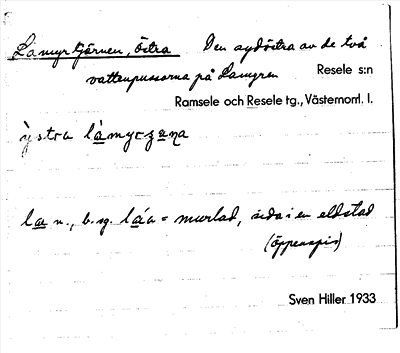 Lamyrtjärnen, östra Den sydöstra av de två
vattenpussarna på Lamyren Resele s:n
Ramsele och Resele tg., Västernorrl. l.
ỳstra là̱myrza̱ṇa
la̱ n., b. sg. lá̱a = murlad, sida i en eldstad
(öppenspis)
Sven Hiller 1933